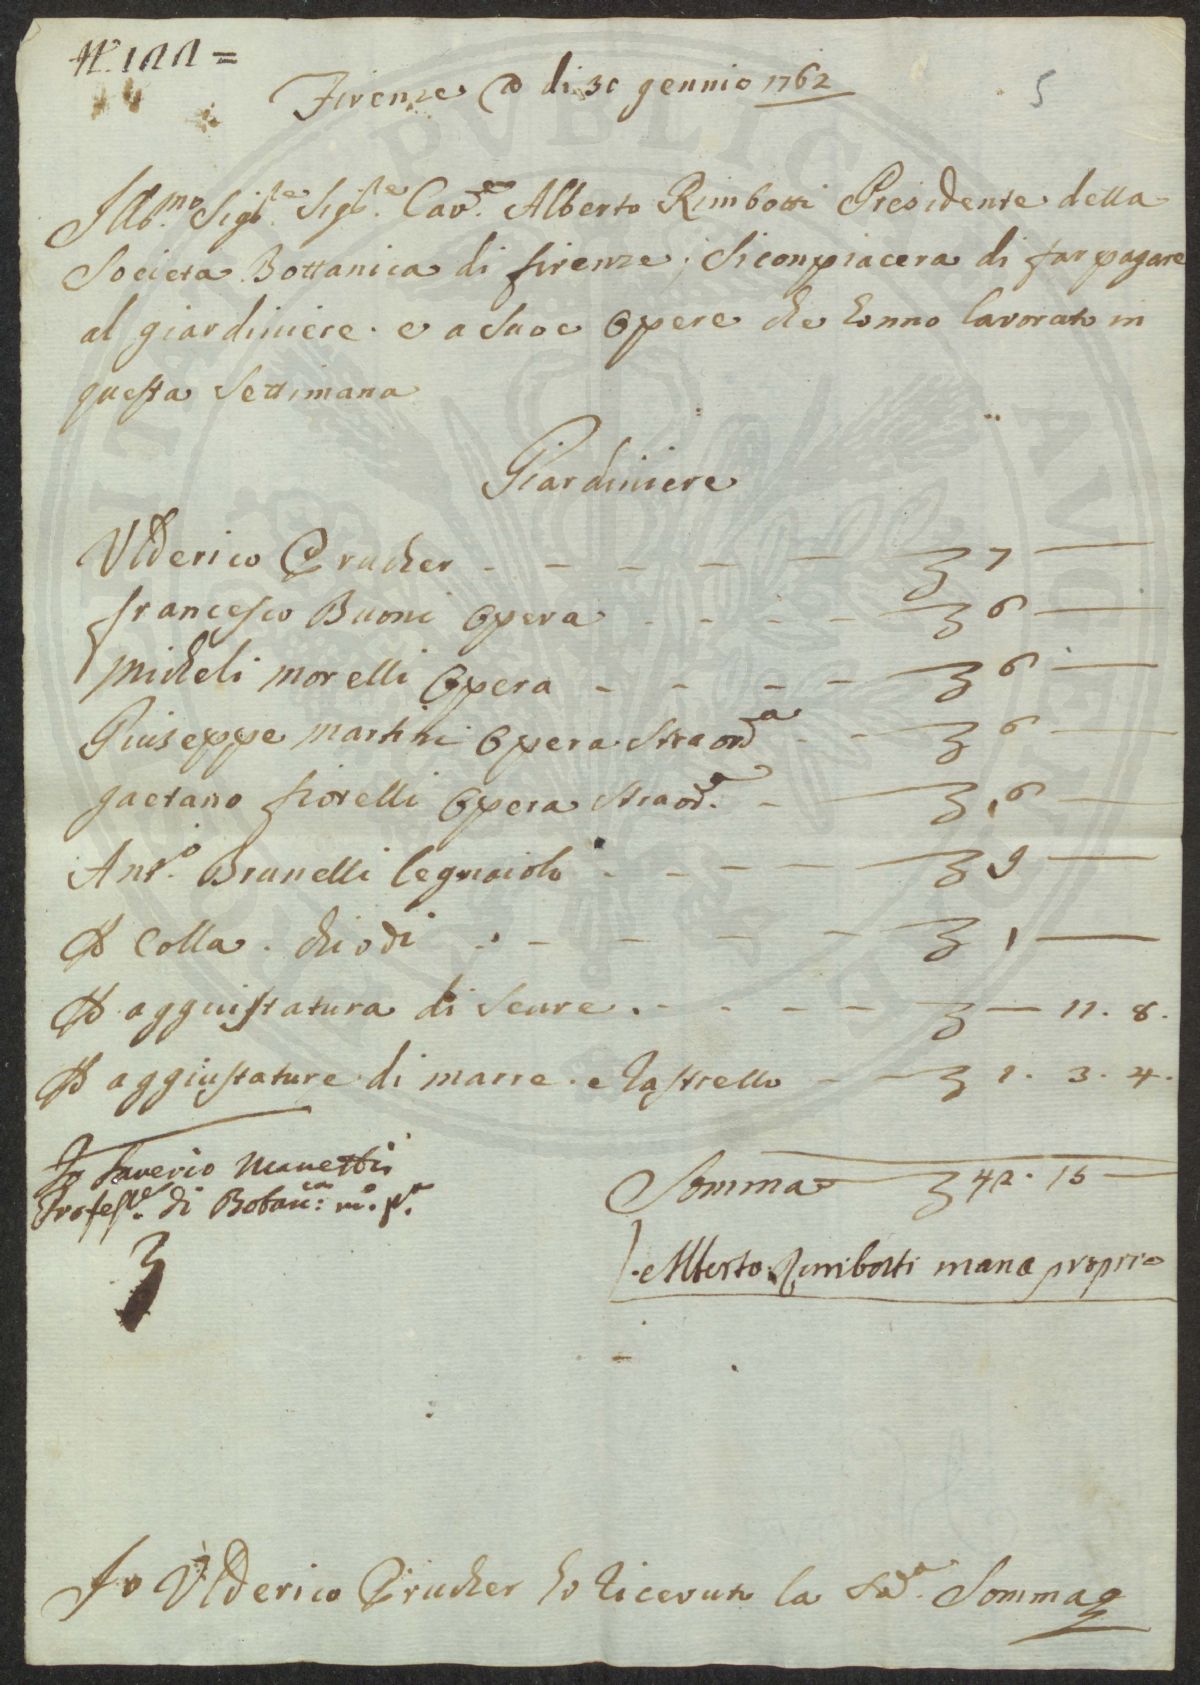 N.° 122 =
5
Firenze a di 30 gennio 1762
Ill.mo Sig.re Sig.re Cav.re Alberto Rimbotti Presidente della
Societa Bottanica di firenze; Si conpiacera di far pagare
al giardiniere e a Suoe Opere che honno lavorato in
questa Settimana
Giardiniere
Ulderico Prucher - - - - - 7 —
francesco Buoni Opera - - - - 6 —
Micheli morelli Opera - - - - 6 —
Giuseppe martini Opera Straord.a - - 6 —
gaetano fiorelli Opera Straor.a - 6 —
Ant.o Brunelli legnaiolo - - - - 9 —
P Colla . chiodi - - - - - 1 —
P aggiustatura di Scure . - - - - — 11. 8.
P aggiustature di marre . e rastrello - - 1. 3. 4.
Io Saverio Manetti
Profess.re di Botan.ca m.o p.a
Somma 42. 15 —
Alberto Rimbotti mano proprio
Io Ulderico Prucher ho ricevuto la Sud.a Somma